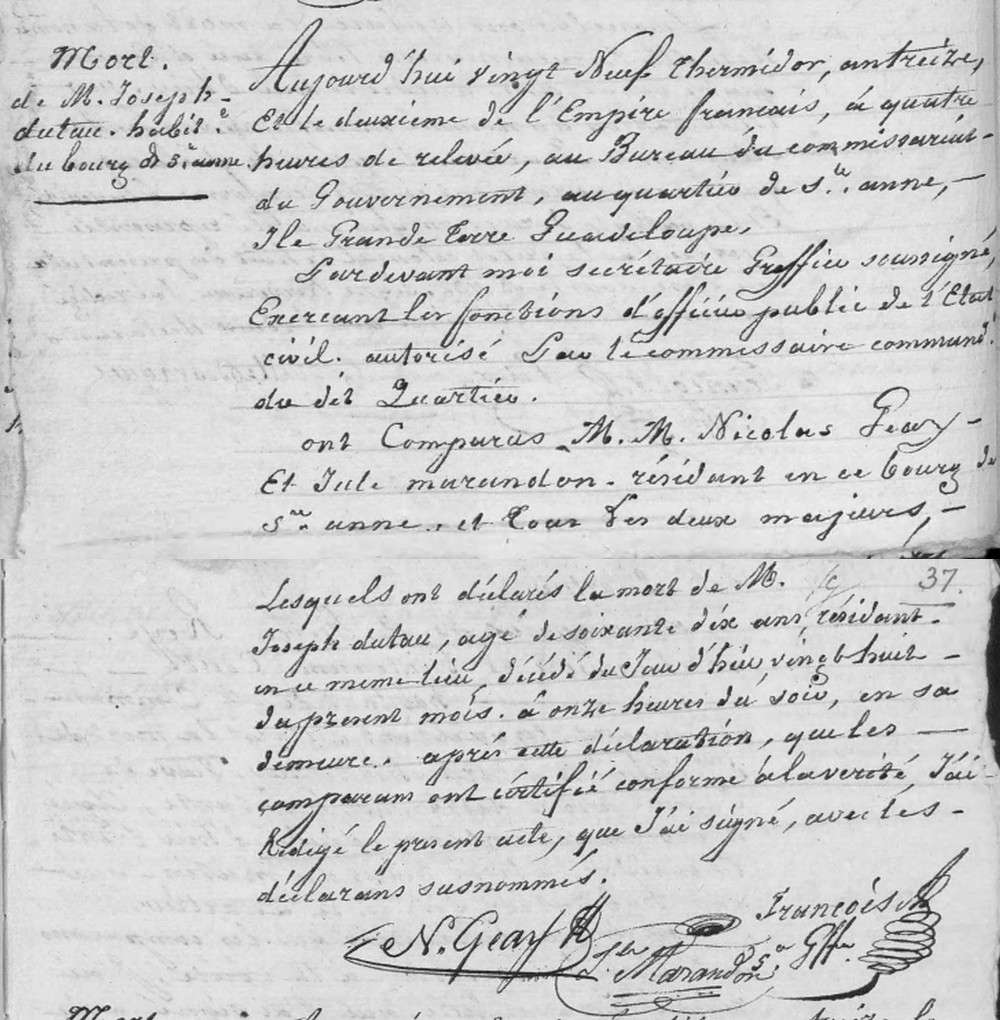 Mort.
de M. Joseph
dutau. habit.e
du bourg de Ste anne
Aujourd'hui vingt Neuf thermidor, an treize,
Et le deuxieme de l'Empire francais, à quatre
heures de relevée, au Bureau du commissariat
du Gouvernement, au quartier de Ste. anne,
Ile Grande terre Guadeloupe.
Pardevant moi secrétaire Greffier soussigné,
Exercant les fonctions d'officier public de l'Etat
civil. autorisé Par le commissaire command.t
du dit Quartier.
ont Comparus M. M. Nicolas Geay
Et Jule marandon. résidant en ce bourg de
Ste anne. et tous les deux majeurs,
37.
Lesquels ont déclarés la mort de M.
Joseph dutau, agé de soixante dix ans résidant
en ce meme lieu, décédé du Jour d'hier vingt huit
du present mois. à onze heures du soir, en sa
demeure. aprés cette déclaration, que les
comparans ont certifié conforme à la verité, J'ai
Redigé le present acte, que J'ai signé, avec les
déclarans susnommés.
N. Geay
Jle Marandon
François
Gffier
Mort